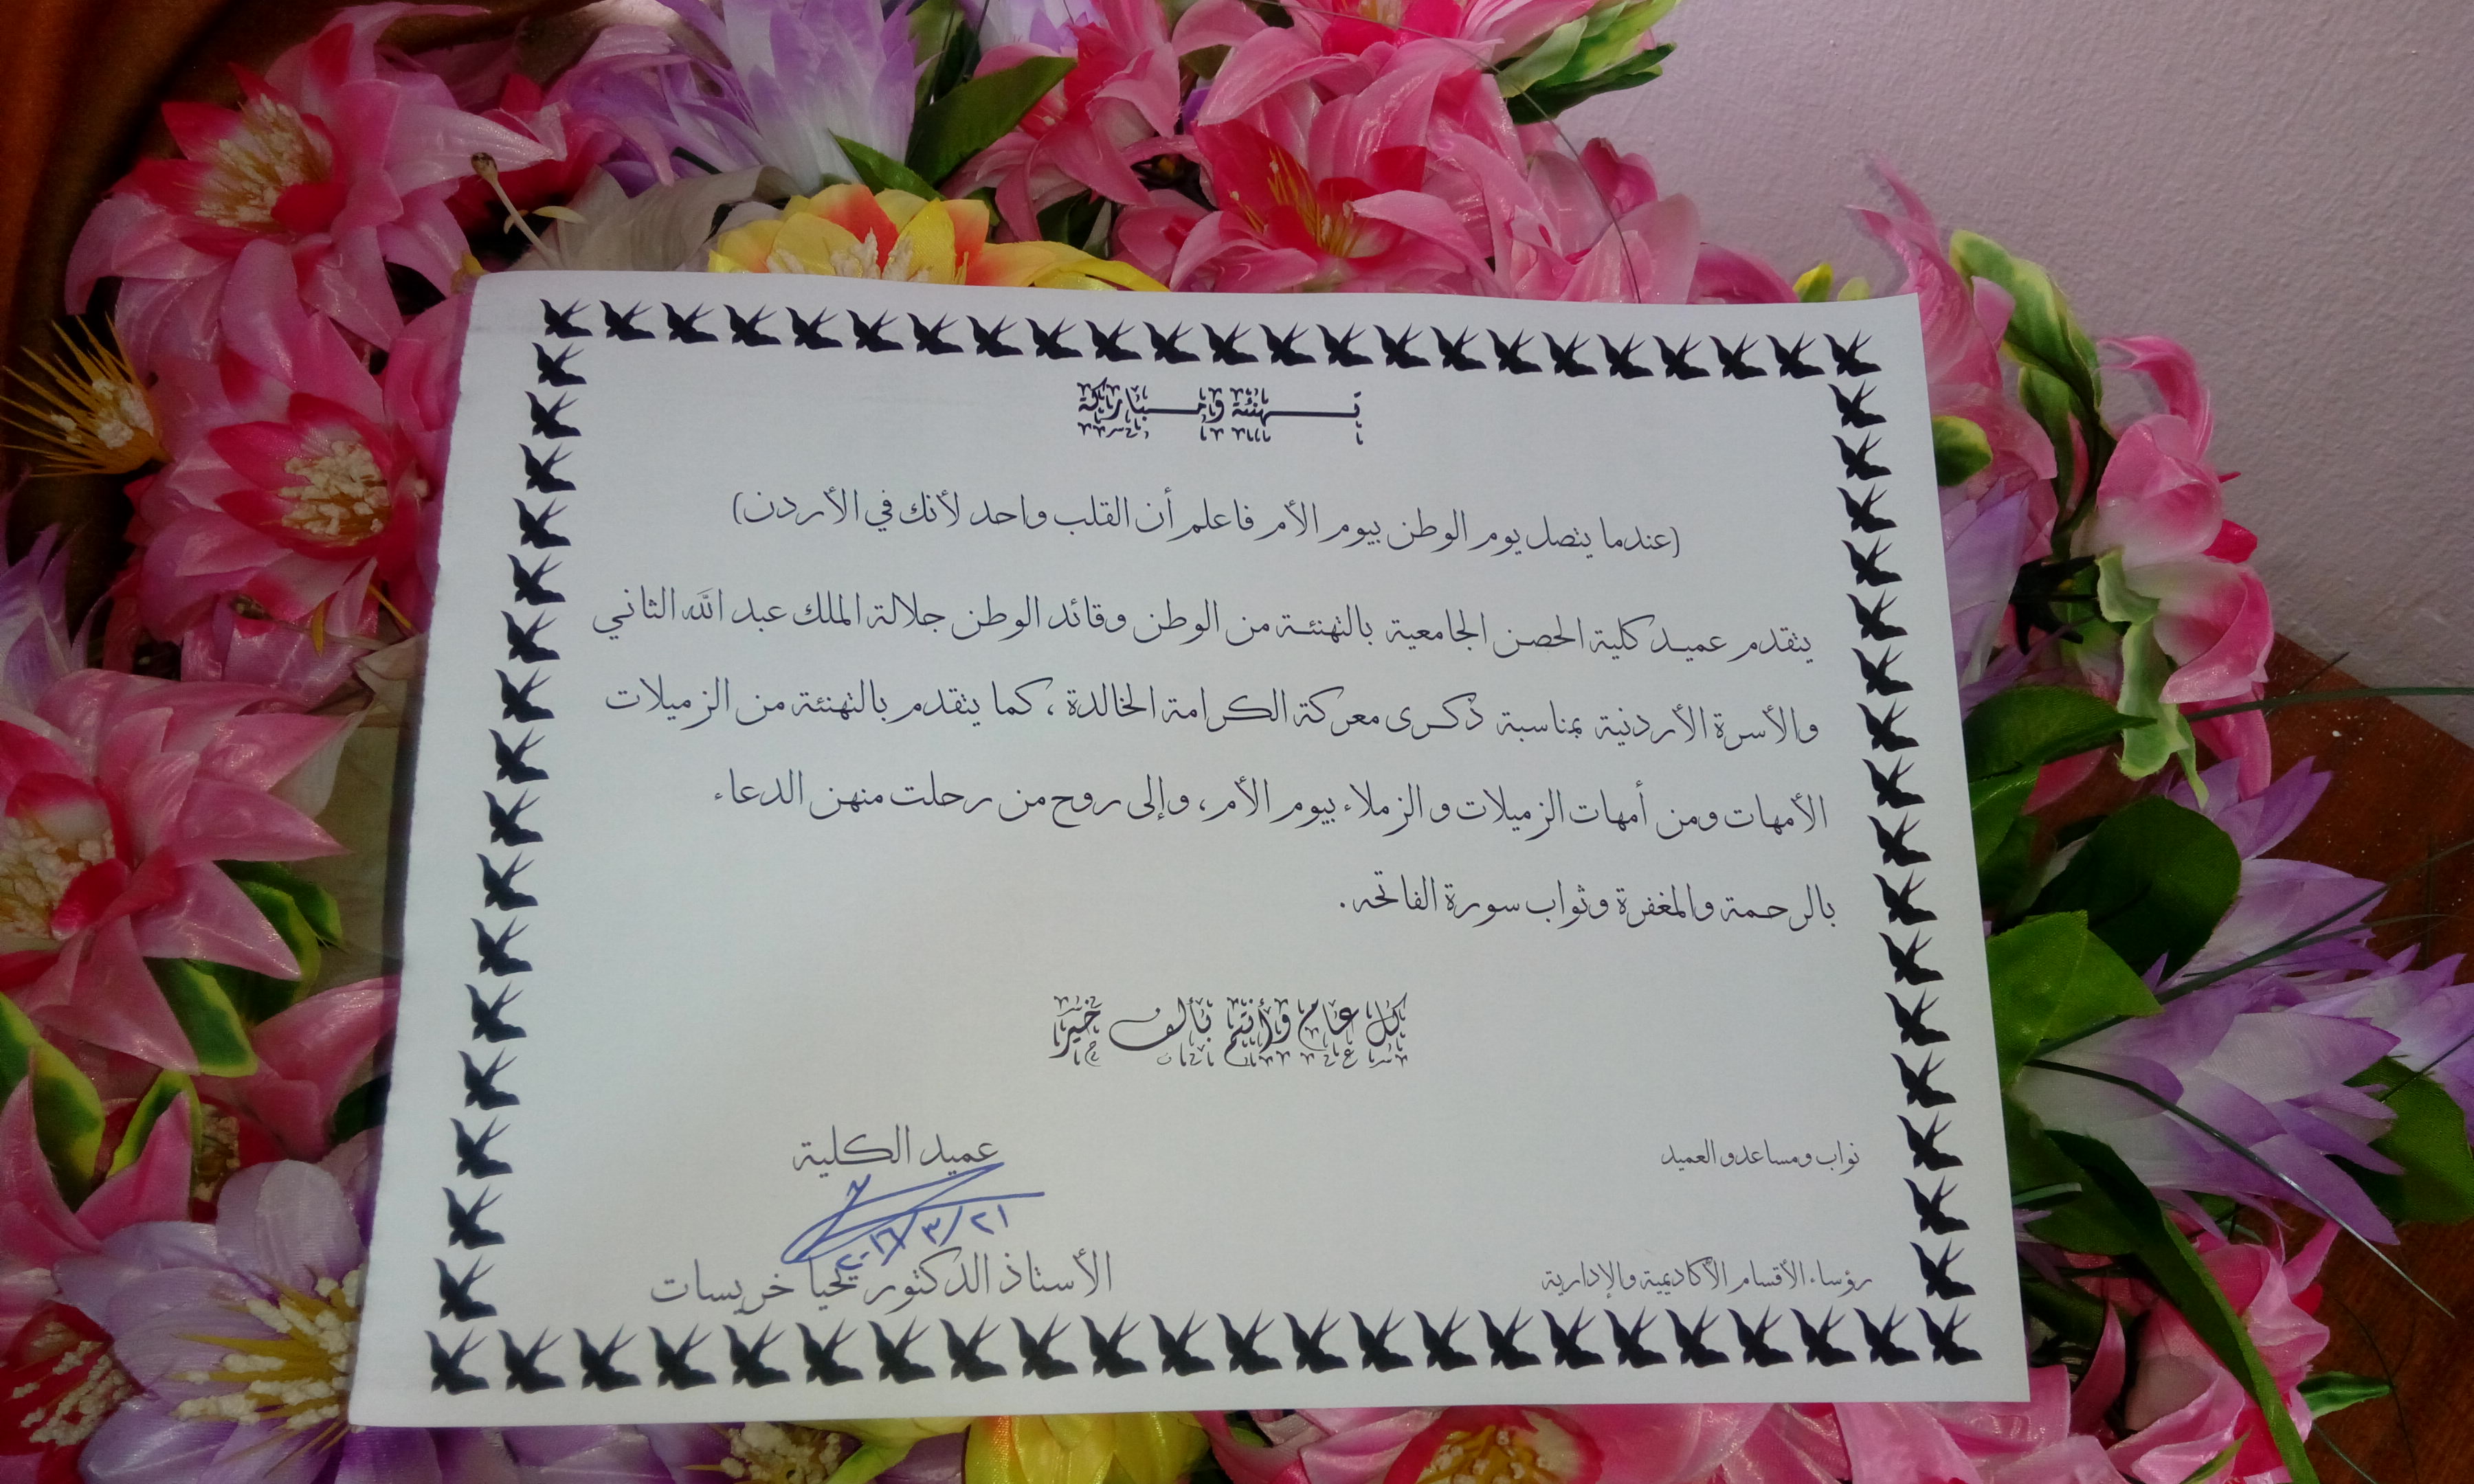 تهنئة ومباركة
(عندما يتصل يوم الوطن بيوم الأم فاعلم أن القلب واحد لأنك في الأردن)
يتقدم عميد كلية الحصن الجامعية بالتهنئة من الوطن وقائد الوطن جلالة الملك عبد الله الثاني
والأسرة الأردنية بمناسبة ذكرى معركة الكرامة الخالدة، كما يتقدم بالتهنئة من الزميلات
الأمهات ومن أمهات الزميلات والزملاء بيوم الأم، وإلى روح من رحلت منهن الدعاء
بالرحمة والمغفرة وثواب سورة الفاتحه.
كل عام وأنتم بألف خير
نواب ومساعدو العميد
عميد الكلية
٢٠١٦/٣/٢١
رؤساء الأقسام الأكاديمية والإدارية
الأستاذ الدكتور يحيا خريسات